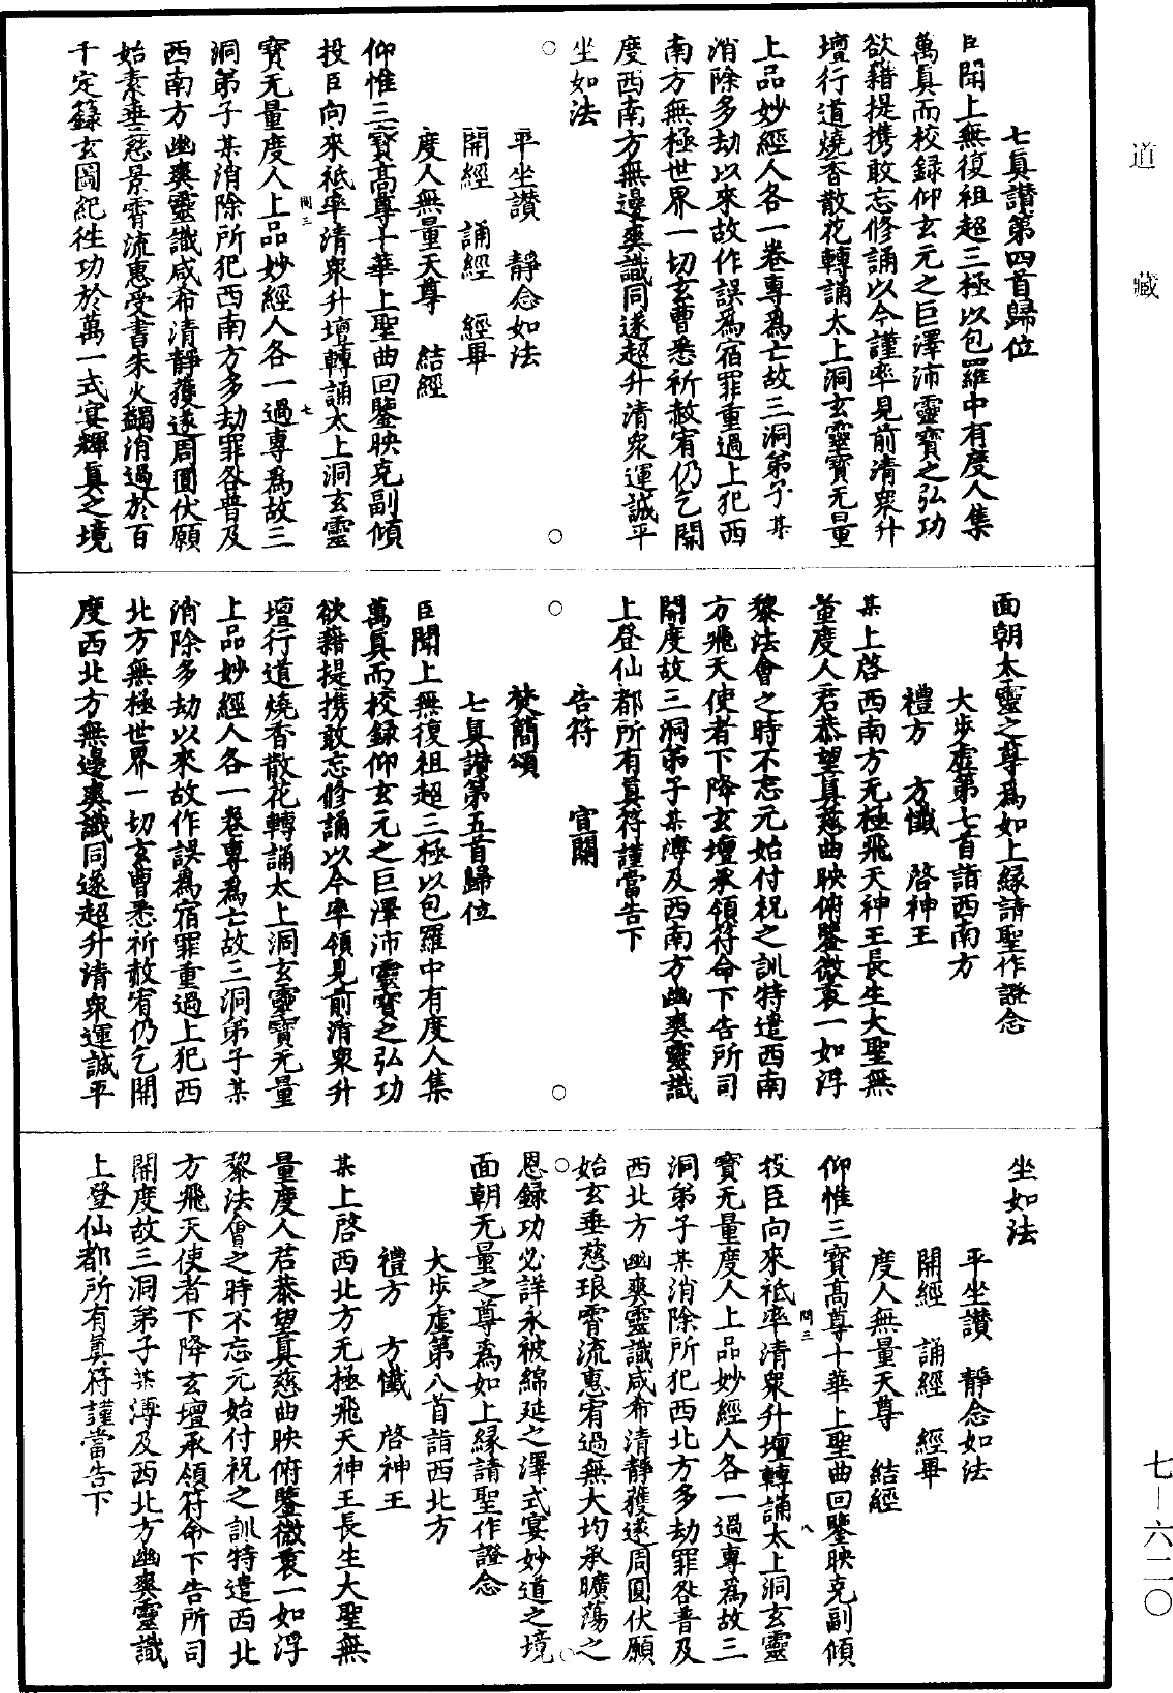 道藏
七真讚第四首歸位
臣聞上無復祖超三極以包羅中有度人集
萬真而校録仰玄元之巨澤沛靈寶之弘功
欲藉提携敢忘修誦以今謹率見前清衆升
壇行道燒香散花轉誦太上洞玄靈寶无量
上品妙經人各一卷專為亡故三洞弟子某
消除多劫以來故作誤為宿罪重過上犯西
南方無極世界一切玄曹悉祈赦宥仍乞開
度西南方無邊爽識同遂超升清衆運誠平
坐如法
平坐讚　靜念如法
開經　誦經　經畢
度人無量天尊　結經
仰惟三寶高尊十華上聖曲回鑒映克副傾
投臣向來祗率清衆升壇轉誦太上洞玄靈
寶无量度人上品妙經人各一過專為故三
洞弟子某消除所犯西南方多劫罪咎普及
西南方幽爽靈識咸希清靜獲遂周圓伏願
始素垂慈景霄流惠受書朱火蠲消過於百
千定籙玄圖紀徃功於萬一式宴輝真之境
面朝太靈之尊為如上縁請聖作證念
大步虛第七首詣西南方
禮方　方懺　啓神王
某上啓西南方无極飛天神王長生大聖無
量度人君恭望真慈曲映俯鑒微衷一如浮
黎法會之時不忘元始付祝之訓特遣西南
方飛天使者下降玄壇承領符命下告所司
開度故三洞弟子某溥及西南方幽爽靈識
上登仙都所有真符謹當告下
告符　宣關
焚簡頌
七真讚第五首歸位
臣聞上無復祖超三極以包羅中有度人集
萬真而校録仰玄元之巨澤沛靈寶之弘功
欲藉提携敢忘修誦以今率領見前清衆升
壇行道燒香散花轉誦太上洞玄靈寶无量
上品妙經人各一卷專為亡故三洞弟子某
消除多劫以來故作誤為宿罪重過上犯西
北方無極世界一切玄曹悉祈赦宥仍乞開
度西北方無邊爽識同遂超升清衆運誠平
坐如法
平坐讚　靜念如法
開經　誦經　經畢
度人無量天尊　結經
仰惟三寶高尊十華上聖曲回鑒映克副傾
投臣向來祗率清衆升壇轉誦太上洞玄靈
寶无量度人上品妙經人各一過專為故三
洞弟子某消除所犯西北方多劫罪咎普及
西北方幽爽靈識咸希清靜獲遂周圓伏願
始玄垂慈琅霄流惠宥過無大均承曠蕩之
恩録功必詳永被綿延之澤式宴妙道之境
面朝无量之尊為如上縁請聖作證念
大步虛第八首詣西北方
禮方　方懺　啓神王
某上啓西北方无極飛天神王長生大聖無
量度人君恭望真慈曲映俯鑒微衷一如浮
黎法會之時不忘元始付祝之訓特遣西北
方飛天使者下降玄壇承領符命下告所司
開度故三洞弟子某溥及西北方幽爽靈識
上登仙都所有真符謹當告下
七-六二〇